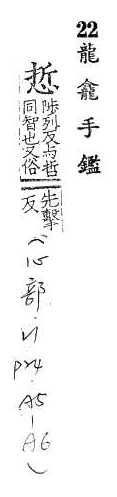 22龍龕手鑑
悊
陟列反与哲
同智也又俗
先擊
反
(心部.11
P24.
A5-
A6)